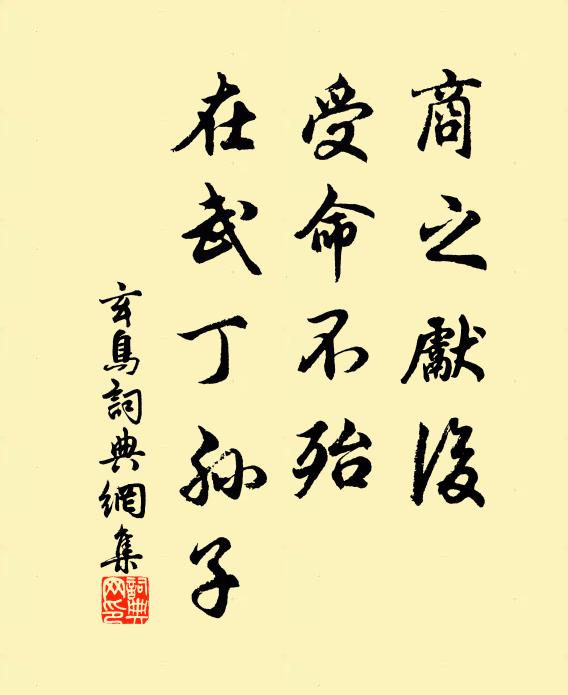 商之獻後
受命不殆
在武丁孫子
玄鳥詞典網集
詞典网印